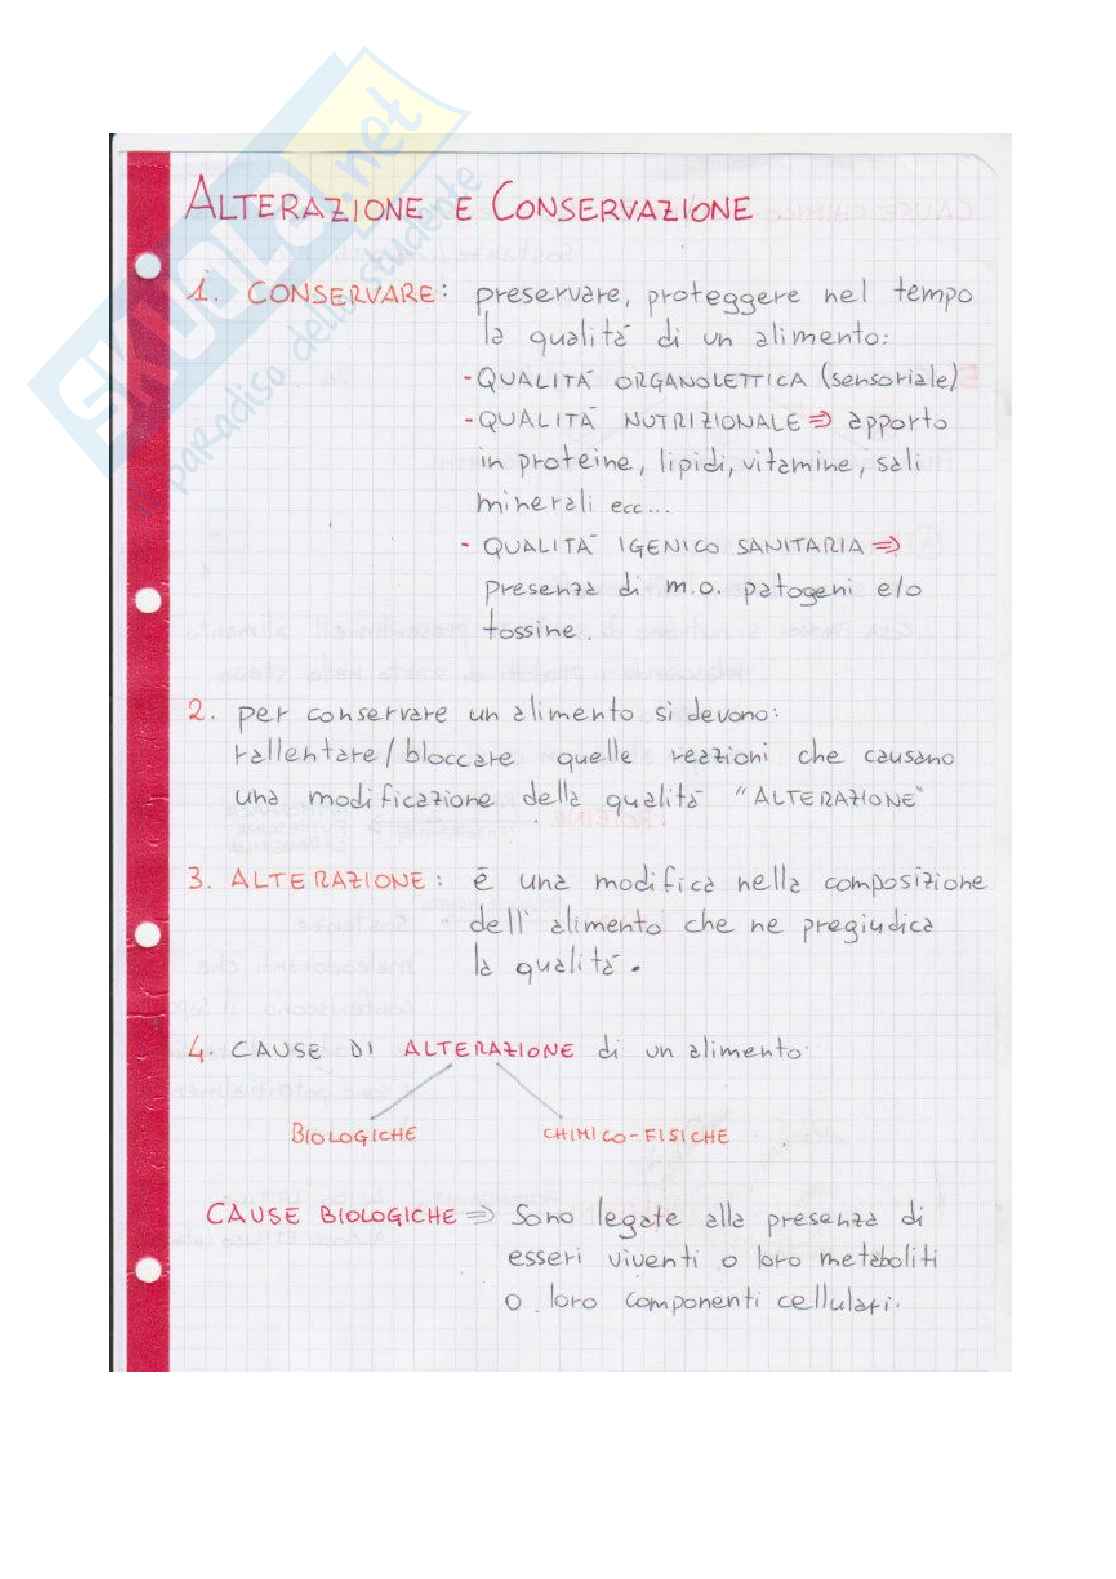 SKUOLA.net
il paradiso dello studente
ALTERAZIONE E CONSERVAZIONE
1. CONSERVARE: preservare, proteggere nel tempo
la qualità di un alimento:
- QUALITÀ ORGANOLETTICA (sensoriale)
- QUALITÀ NUTRIZIONALE ⇒ apporto
in proteine, lipidi, vitamine, sali
minerali ecc...
- QUALITÀ IGENICO SANITARIA ⇒
presenza di m.o. patogeni e/o
tossine.
2. per conservare un alimento si devono:
rallentare/bloccare quelle reazioni che causano
una modificazione della qualità "ALTERAZIONE"
3. ALTERAZIONE: è una modifica nella composizione
dell'alimento che ne pregiudica
la qualità.
4. CAUSE DI ALTERAZIONE di un alimento:
BIOLOGICHE CHIMICO-FISICHE
CAUSE BIOLOGICHE ⇒ Sono legate alla presenza di
esseri viventi o loro metaboliti
o loro componenti cellulari.